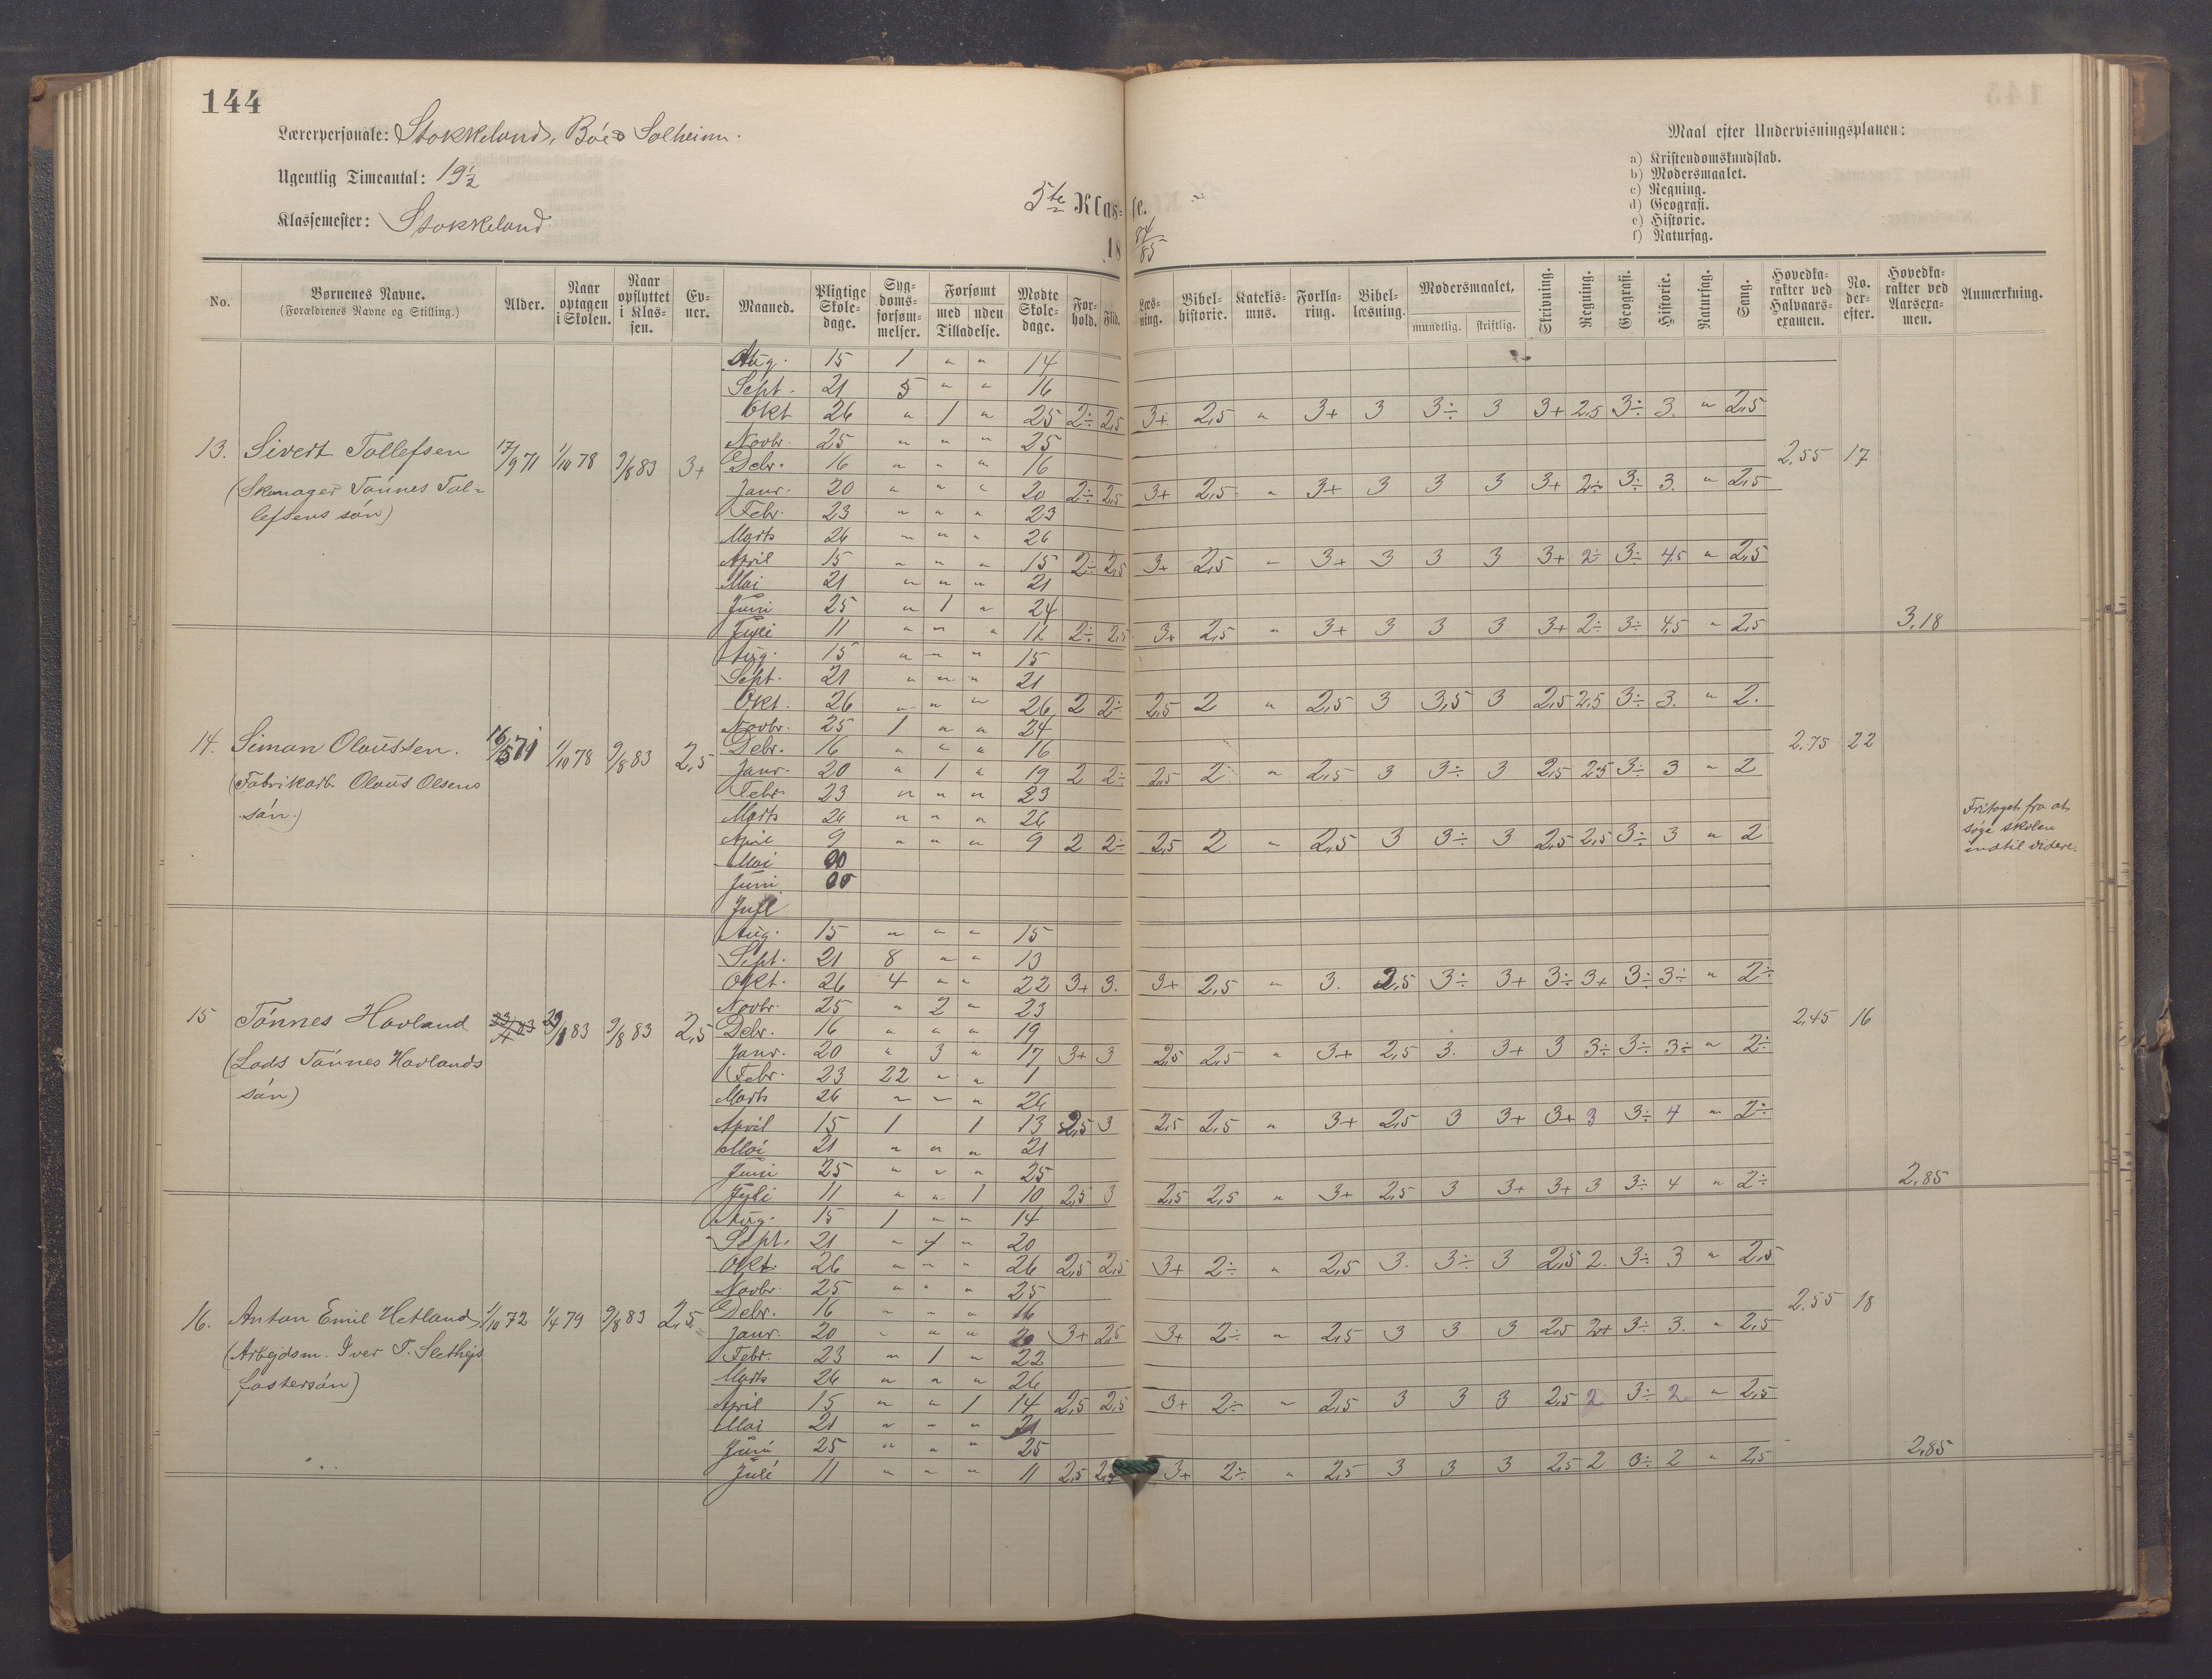 144
Lærerpersonale: Stokkeland, Bóe & Solheim.
Ugentlig Timeantal: 19 1/2
Klassemester: Stokkeland
5te Klasse.
18 84/85
Maal efter Undervisningsplanen:
a) Kristendomskundskab.
b) Modersmaalet.
c) Regning.
d) Geografi.
e) Historie.
f) Naturfag.
No. Børnenes Navne. (Forældrenes Navne og Stilling.) Alder. Naar optagen i Skolen. Naar opflyttet i Klassen. Evner. Maaned. Pligtige Skoledage. Sygdomsforsømmelser. Forsømt med uden Tilladelse. Mødte Skoledage. Forhold. Flid. Læsning. Bibelhistorie. Katekismus. Forklaring. Bibellæsning. Modersmaalet, mundtlig. skriftlig. Skrivning. Regning. Geografi. Historie. Naturfag. Sang. Hovedkarakter ved Halvaarsexamen. No. derefter. Hovedkarakter ved Aarsexamen. Anmærkning.
Aug. 15 1 " " 14
Sept. 21 5 " " 16
Okt 26 " 1 " 25 2÷ 2,5 3+ 2,5 " 3+ 3 3÷ 3 3+ 2,5 3÷ 3. " 2,5
Novbr. 25 " " " 25
13. Sivert Tollefsen 17/9 71 1/10 78 9/8 83 3+ Debr. 16 " " " 16 2,55 17
(Skomager Tónnes Tol= Janr. 20 " " " 20 2÷ 2,5 3+ 2,5 " 3+ 3 3 3 3+ 2÷ 3÷ 3. " 2,5
lefsens són) Febr. 23 " " " 23
Marts 26 " " " 26
April 15 " " " 15 2÷ 2,5 3+ 2,5 " 3+ 3 3 3 3+ 2÷ 3÷ 4,5 " 2,5
Mai 21 " " " 21
Juni 25 " 1 " 24
Juli 11 " " " 11 2÷ 2,5 3+ 2,5 " 3+ 3 3 3 3+ 2÷ 3÷ 4,5 " 2,5 3,18
Aug. 15 " " " 15
Sept. 21 " " " 21
Okt. 26 " " " 26 2 2÷ 2,5 2 " 2,5 3 3,5 3 2,5 2,5 3÷ 3. " 2.
Novbr. 25 1 " " 24
14. Simon Olaussen. 16/5 71 1/10 78 9/8 83 2,5 Debr. 16 " " " 16 2,75 22
(Fabrikarb. Olaus Olsens Janr. 20 " 1 " 19 2 2÷ 2,5 2 " 2,5 3 3÷ 3 2,5 2,5 3÷ 3 " 2
són.) Febr 23 " " " 23
Marts 26 " " " 26
April 9 " " " 9 2 2÷ 2,5 2 " 2,5 3 3÷ 3 2,5 2,5 3÷ 3 " 2
Fritaget fra at
søge skolen
indtil videre.
Mai
Juni
Juli
Aug. 15 " " " 15
Sept. 21 8 " " 13
Okt. 26 4 " " 22 3+ 3. 3+ 2,5 " 3. 2,5 3÷ 3+ 3÷ 3+ 3÷ 3÷ " 2÷
Novbr. 25 " 2 " 23
15 Tónnes Havland 23/1 83 9/8 83 2,5 Debr. 16 " " " 19 2,45 16
(Lods Tónnes Havlands Janr. 20 " 3 " 17 3+ 3 2,5 2,5 " 3+ 2,5 3. 3+ 3 3÷ 3÷ 3÷ " 2÷
són) Febr. 23 22 " " 1
Marts 26 " " " 26
April 15 1 1 13 2,5 3 2,5 2,5 " 3+ 2,5 3 3+ 3+ 3 3÷ 4 " 2÷
Mai 21 " " " 21
Juni 25 " " " 25
Juli 11 " " 1 10 2,5 3 2,5 2,5 " 3+ 2,5 3 3+ 3+ 3 3÷ 4 " 2÷ 2,85
Aug. 15 1 " " 14
Sept. 21 " 1 " 20
Okt. 26 " " " 26 2,5 2,5 3+ 2÷ " 2,5 3. 3÷ 3 2,5 2. 3÷ 3 " 2,5
Novbr. 25 " " " 25
16. Anton Emil Hetland 1/10 72 1/4 79 9/8 83 2,5 Debr. 16 " " " 16 2,55 18
(Arbejdsm. Iver T. Slethejs Janr. 20 " " " 20 3+ 2,5 3+ 2÷ " 2,5 3 3 3 2,5 2+ 3÷ 3. " 2,5
fostersón) Febr. 23 " 1 " 22
Marts 26 " " " 26
April 15 " " 1 14 2,5 2,5 3+ 2÷ " 2,5 3 3 3 2,5 2 3÷ 2 " 2,5
Mai 21 " " " 21
Juni 25 " " " 25
Juli 11 " " " 11 2,5 2,5 3+ 2÷ " 2,5 3 3 3 2,5 2 3÷ 2 " 2,5 2,85